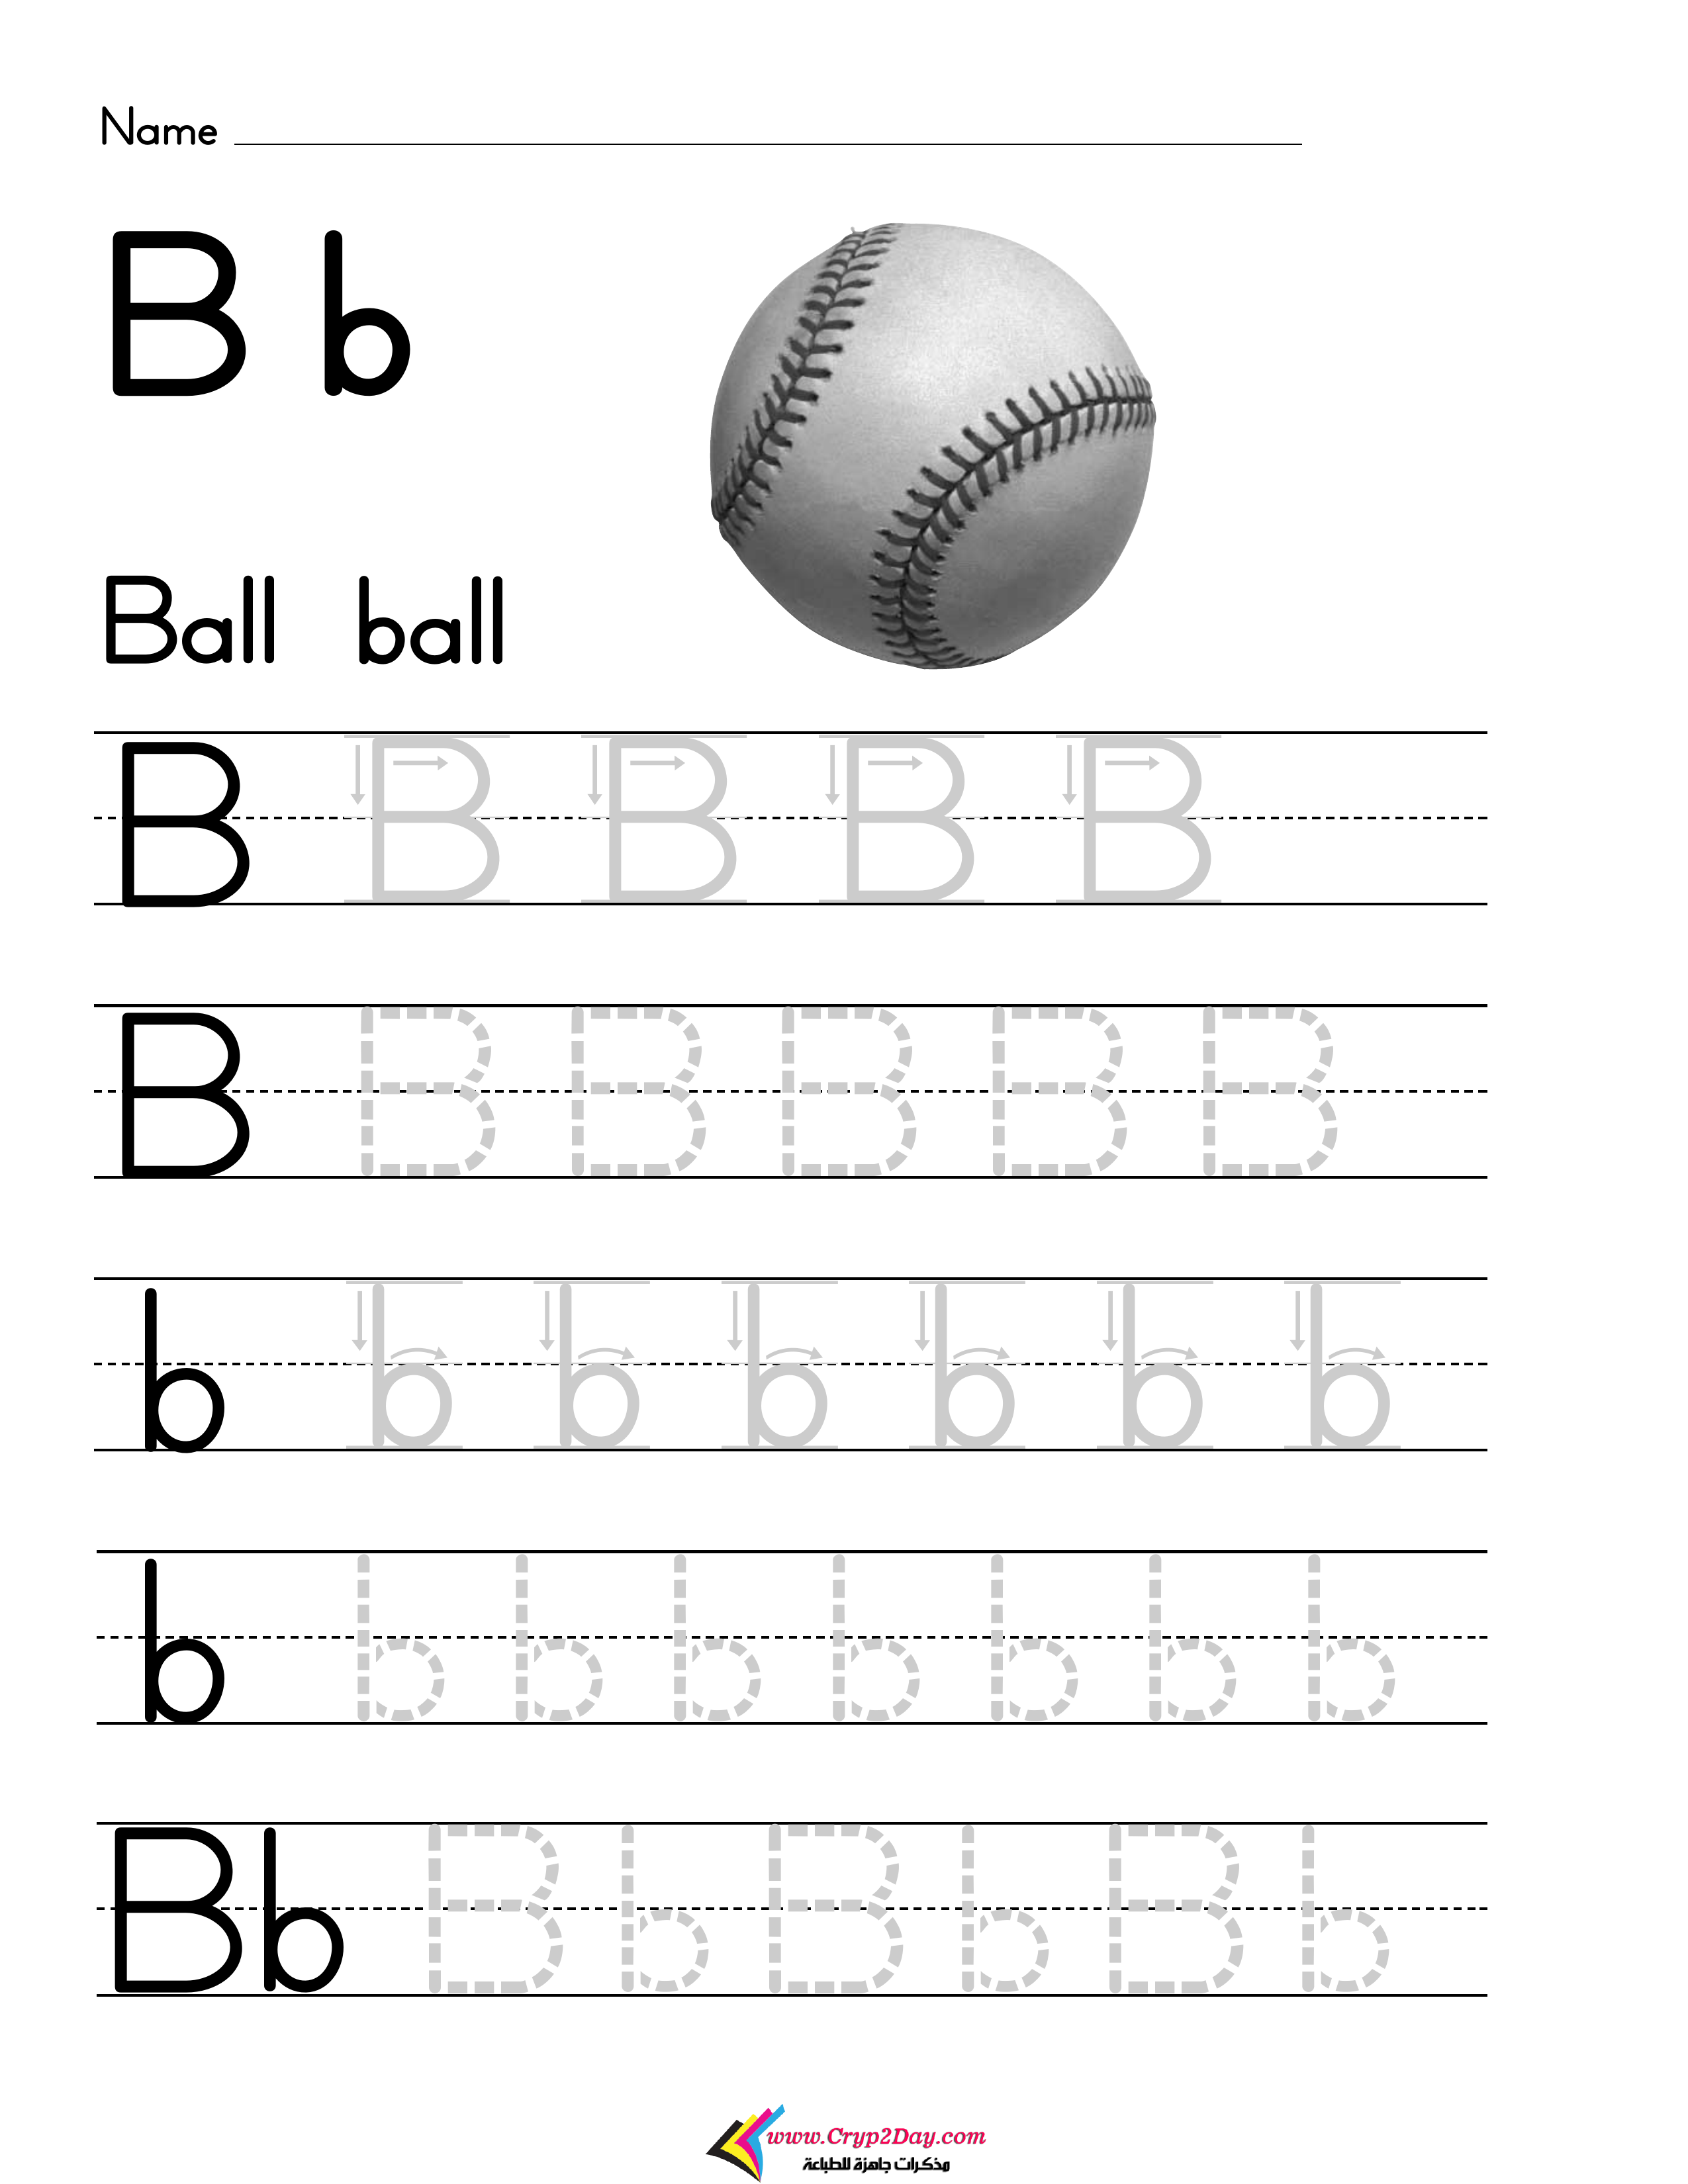 Name
B b
Ball ball
B B B B B
B B B B B B
b b b b b b b
b b b b b b b b
Bb B b B b B b
www.Cryp2Day.com
مذكرات جاهزة للطباعة